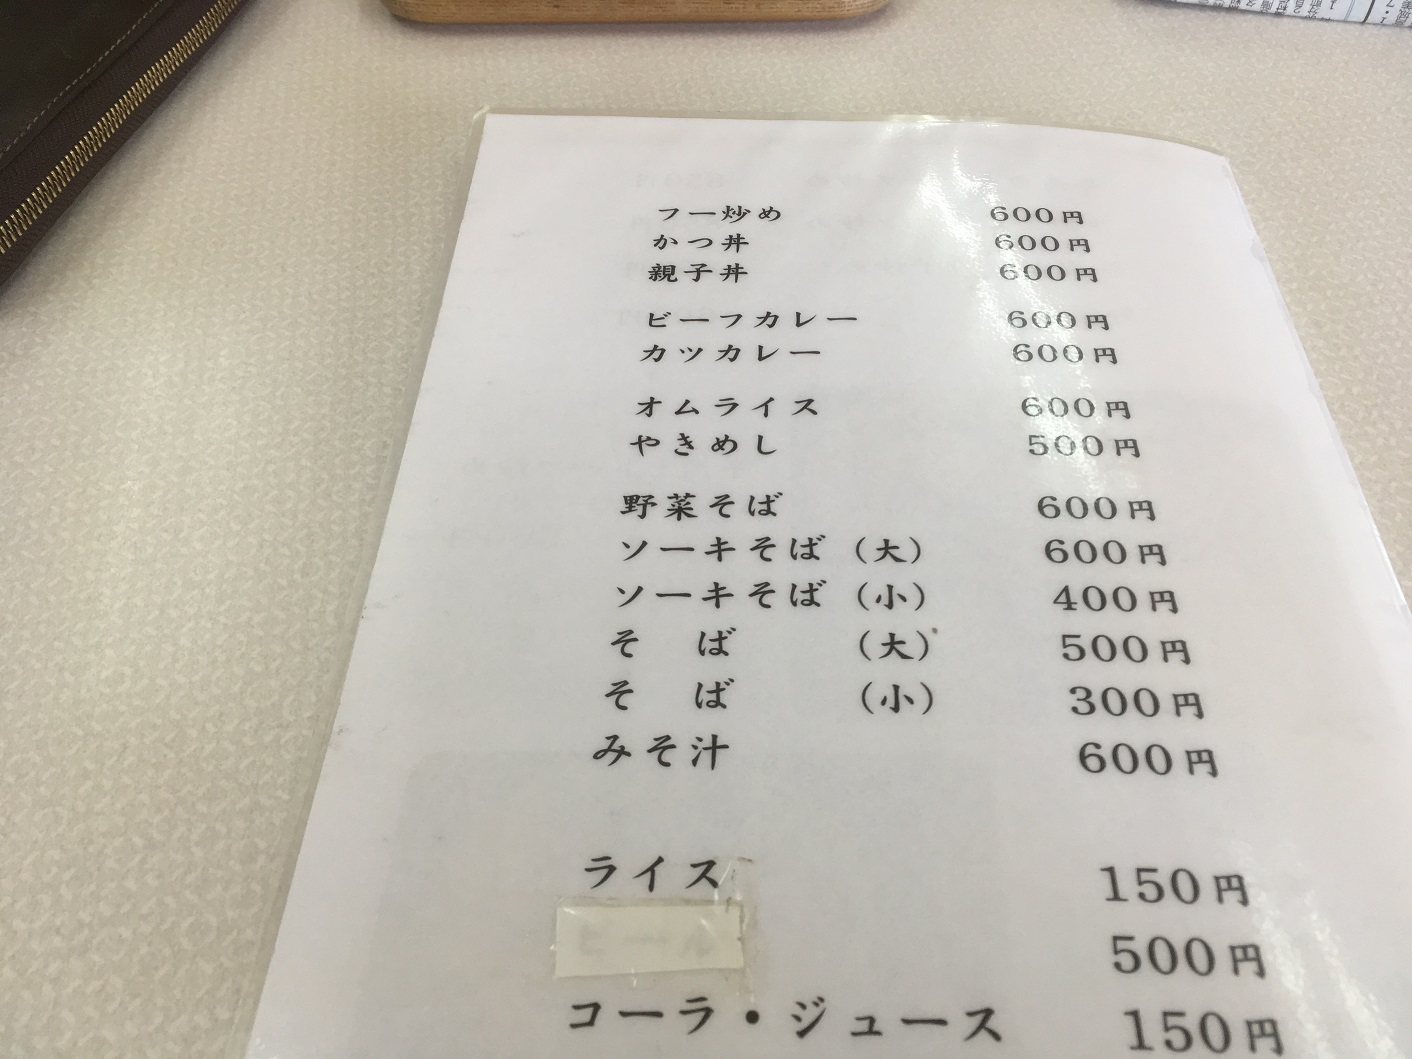 フー炒め 600円
かつ丼 600円
親子丼 600円
ビーフカレー 600円
カツカレー 600円
オムライス 600円
やきめし 500円
野菜そば 600円
ソーキそば (大) 600円
ソーキそば (小) 400円
そ ば (大) 500円
そ ば (小) 300円
みそ汁 600円
ライス 150円
500円
コーラ・ジュース 150円